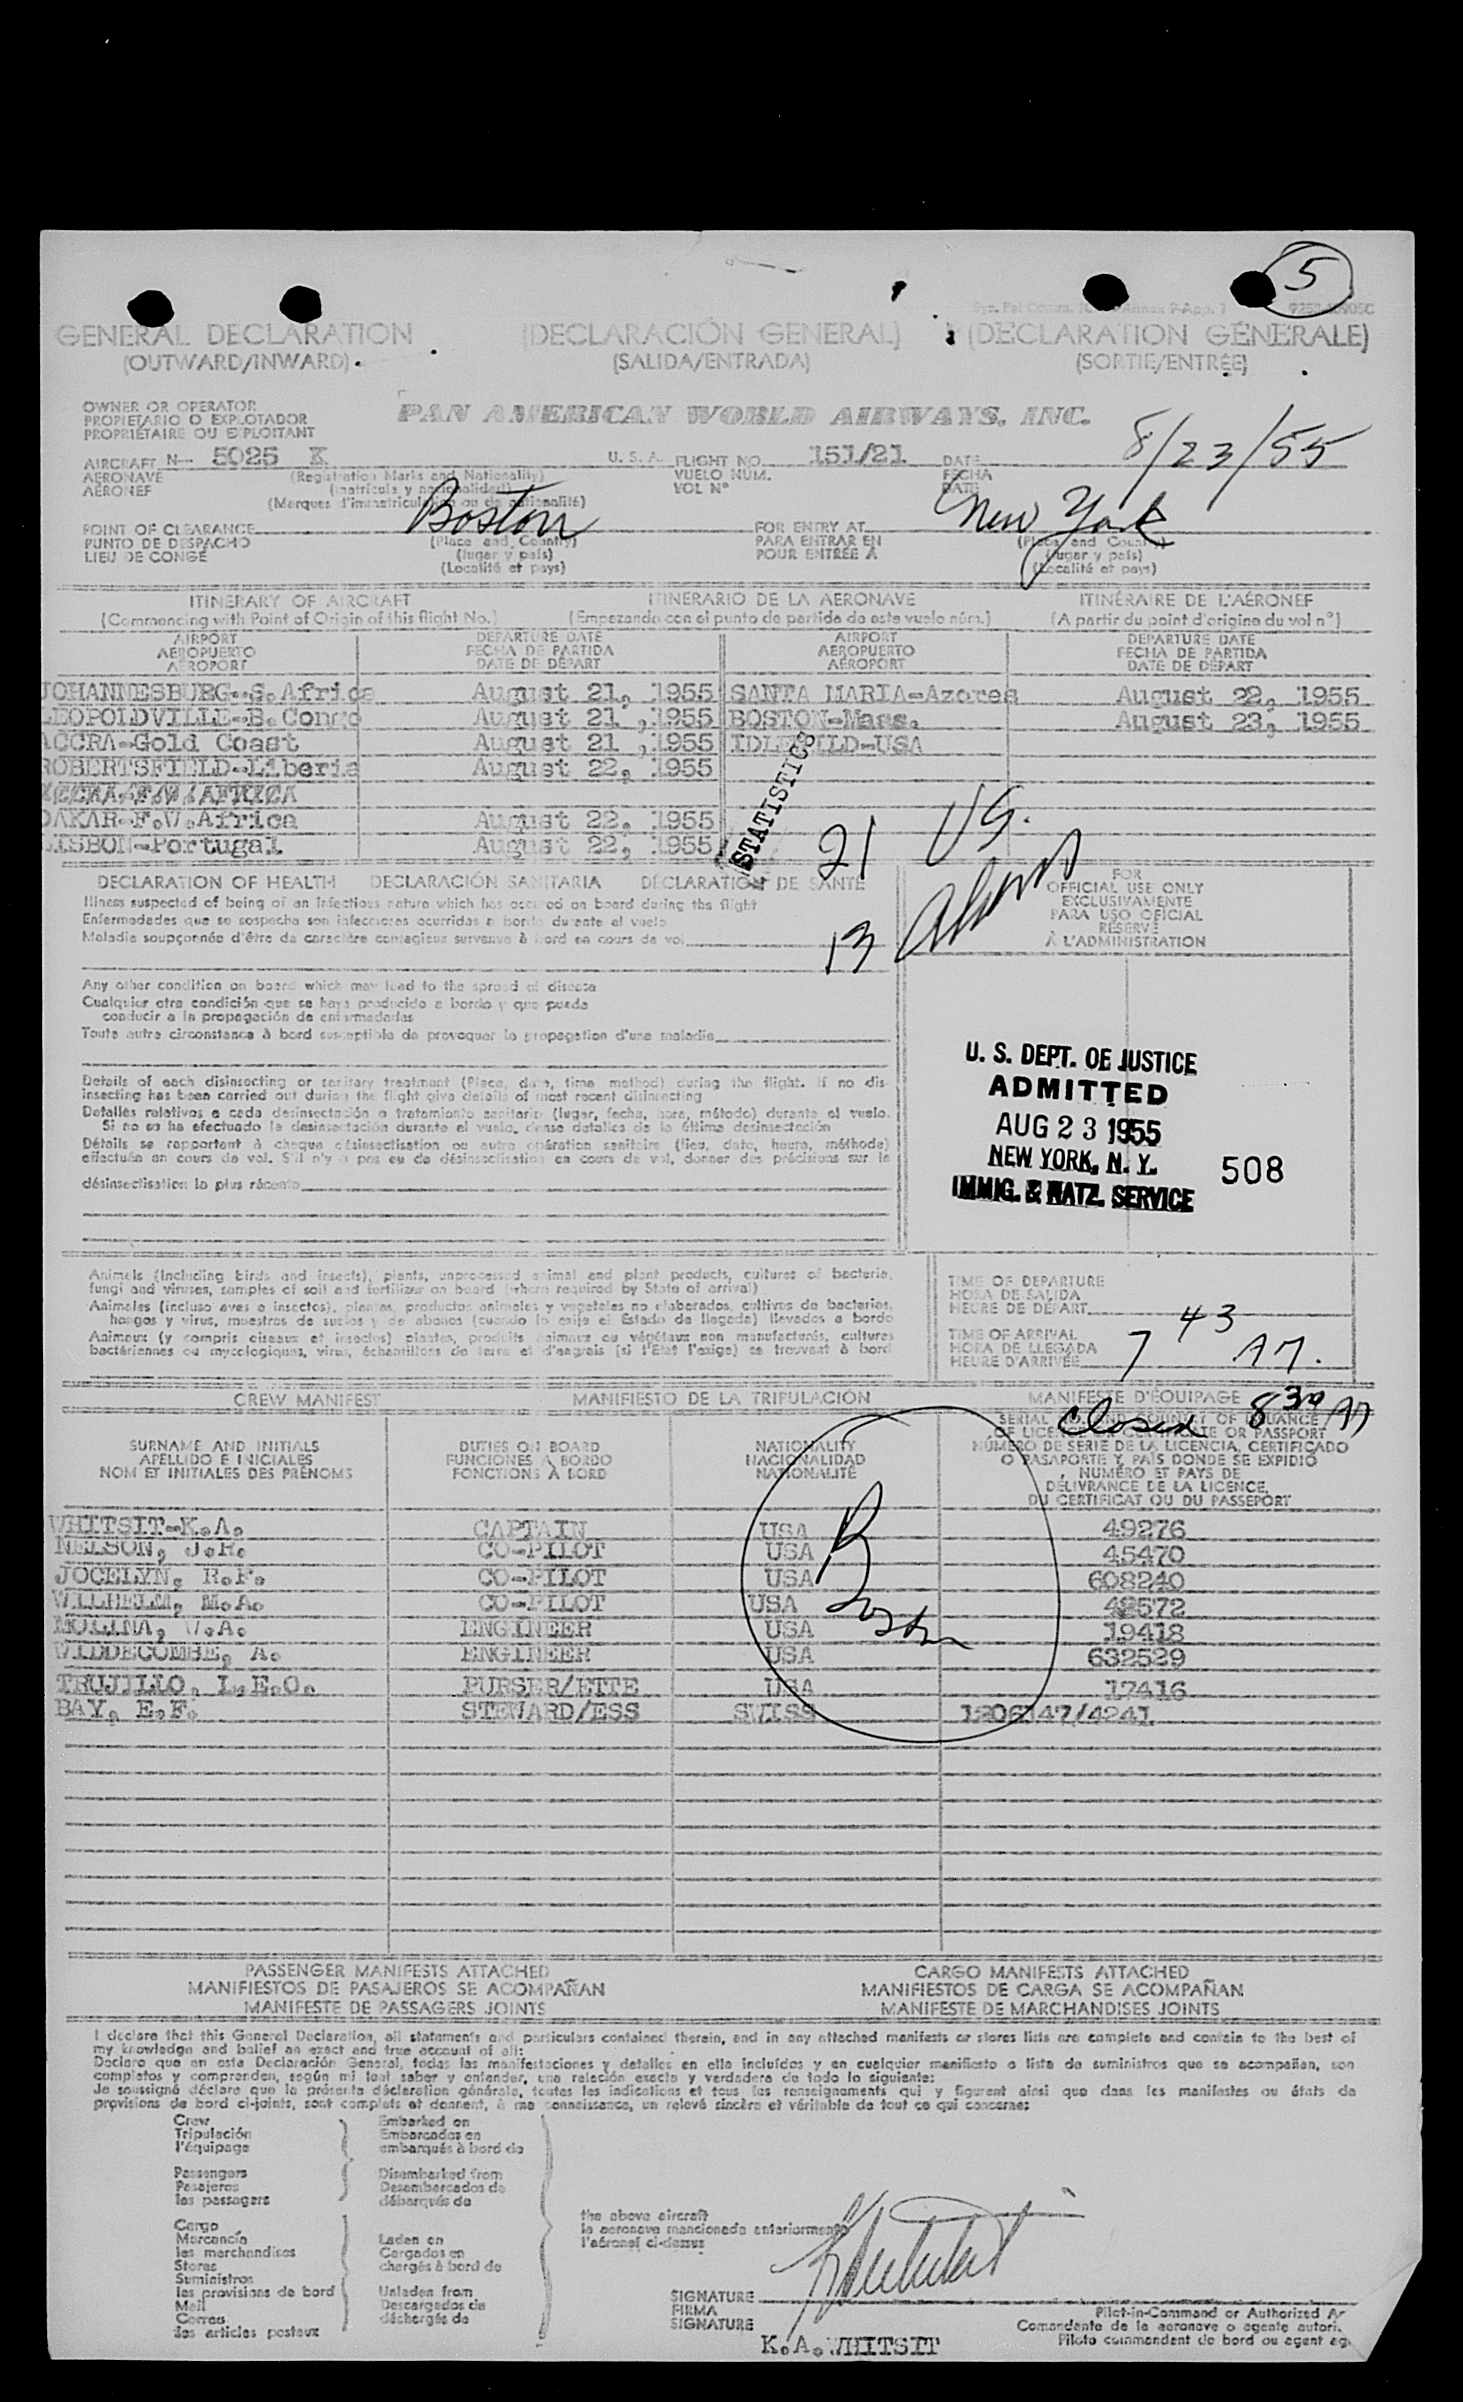 5
GENERAL DECLARATION (DECLARACIÓN GENERAL) (DECLARATION GÉNÉRALE)
(OUTWARD/INWARD) (SALIDA/ENTRADA) (SORTIE/ENTRÉE)
OWNER OR OPERATOR
PROPIETARIO O EXPLOTADOR
PROPRIÉTAIRE OU EXPLOITANT
PAN AMERICAN WORLD AIRWAYS, INC.
AIRCRAFT N- 5025 K U. S. A. FLIGHT NO. 151/21 DATE 8/23/55
AERONAVE (Registration Marks and Nationality) VUELO NÚM. FECHA
AÉRONEF (matrícula y nacionalidad) VOL Nº DATE
(Marques d'immatriculation ou de nationalité)
POINT OF CLEARANCE Boston FOR ENTRY AT New York
PUNTO DE DESPACHO (Place and Country) PARA ENTRAR EN (Place and Country)
LIEU DE CONGÉ (lugar y país) POUR ENTRÉE À (lugar y país)
(Localité et pays) (Localité et pays)
ITINERARY OF AIRCRAFT ITINERARIO DE LA AERONAVE ITINÉRAIRE DE L'AÉRONEF
(Commencing with Point of Origin of this flight No.) (Empezando con el punto de partida de este vuelo núm.) (A partir du point d'origine du vol nº)
AIRPORT DEPARTURE DATE AIRPORT DEPARTURE DATE
AEROPUERTO FECHA DE PARTIDA AEROPUERTO FECHA DE PARTIDA
AÉROPORT DATE DE DÉPART AÉROPORT DATE DE DÉPART
JOHANNESBURG-S.Africa August 21, 1955 SANTA MARIA-Azores August 22, 1955
LEOPOLDVILLE-B.Congo August 21 ,1955 BOSTON-Mass. August 23, 1955
ACCRA-Gold Coast August 21 ,1955 IDLEWILD-USA
ROBERTSFIELD-Liberia August 22, 1955
DAKAR-F.W.Africa August 22, 1955
LISBON-Portugal August 22, 1955
STATISTICS
21 US.
13 Aliens
DECLARATION OF HEALTH DECLARACIÓN SANITARIA DÉCLARATION DE SANTÉ
Illness suspected of being of an infectious nature which has occurred on board during the flight
Enfermedades que se sospecha son infecciosas ocurridas a bordo durante el vuelo
Maladie soupçonnée d'être de caractère contagieux survenue à bord en cours de vol
FOR
OFFICIAL USE ONLY
EXCLUSIVAMENTE
PARA USO OFICIAL
RÉSERVÉ
À L'ADMINISTRATION
Any other condition on board which may lead to the spread of disease
Cualquier otra condición que se haya producido a bordo y que pueda
conducir a la propagación de enfermedades
Toute autre circonstance à bord susceptible de provoquer la propagation d'une maladie
Details of each disinsecting or sanitary treatment (Place, date, time method) during the flight. If no dis-
insecting has been carried out during the flight give details of most recent disinsecting
Detalles relativos a cada desinsectación o tratamiento sanitario (lugar, fecha, hora, método) durante el vuelo.
Si no se ha efectuado la desinsectación durante el vuelo, dense detalles de la última desinsectación
Détails se rapportant à chaque désinsectisation ou autre opération sanitaire (lieu, date, heure, méthode)
effectuée en cours de vol. S'il n'y a pas eu de désinsectisation en cours de vol, donner des précisions sur la
désinsectisation la plus récente
U. S. DEPT. OF JUSTICE
ADMITTED
AUG 23 1955
NEW YORK, N. Y. 508
IMMIG. & NATZ. SERVICE
Animals (Including birds and insects), plants, unprocessed animal and plant products, cultures of bacteria,
fungi and viruses, samples of soil and fertilizer on board (where required by State of arrival)
Animales (incluso aves e insectos), plantas, productos animales y vegetales no elaborados, cultivos de bacterias,
hongos y virus, muestras de suelos y de abonos (cuando lo exija el Estado de llegada) llevados a bordo
Animaux (y compris oiseaux et insectes) plantes, produits animaux ou végétaux non manufacturés, cultures
bactériennes ou mycologiques, virus, échantillons de terre et d'engrais (si l'État l'exige) se trouvant à bord
TIME OF DEPARTURE
HORA DE SALIDA
HEURE DE DÉPART
TIME OF ARRIVAL
HORA DE LLEGADA
HEURE D'ARRIVÉE 7 43 AM.
CREW MANIFEST MANIFIESTO DE LA TRIPULACIÓN MANIFESTE D'ÉQUIPAGE
Closed 8 30 AM
SURNAME AND INITIALS DUTIES ON BOARD NATIONALITY SERIAL NO. AND COUNTRY OF ISSUANCE
APELLIDO E INICIALES FUNCIONES A BORDO NACIONALIDAD OF LICENCE OR CERTIFICATE OR PASSPORT
NOM ET INITIALES DES PRÉNOMS FONCTIONS À BORD NATIONALITÉ NÚMERO DE SERIE DE LA LICENCIA, CERTIFICADO
O PASAPORTE Y PAÍS DONDE SE EXPIDIÓ
NUMÉRO ET PAYS DE
DÉLIVRANCE DE LA LICENCE,
DU CERTIFICAT OU DU PASSEPORT
WHITSIT-K.A. CAPTAIN USA 49276
NELSON, J.R. CO-PILOT USA 45470
JOCELYN, R.F. CO-PILOT USA 608240
WILLHELM, M.A. CO-PILOT USA 48572
MOLINA, V.A. ENGINEER USA 19418
WIDDECOMBE, A. ENGINEER USA 632529
TRUJILLO, L.E.O. PURSER/ETTE USA 17416
BAY, E.F. STEWARD/ESS SWISS 1206147/4241
Boston
PASSENGER MANIFESTS ATTACHED CARGO MANIFESTS ATTACHED
MANIFIESTOS DE PASAJEROS SE ACOMPAÑAN MANIFIESTOS DE CARGA SE ACOMPAÑAN
MANIFESTE DE PASSAGERS JOINTS MANIFESTE DE MARCHANDISES JOINTS
I declare that this General Declaration, all statements and particulars contained therein, and in any attached manifests or stores lists are complete and contain to the best of
my knowledge and belief an exact and true account of all:
Declaro que en esta Declaración General, todas las manifestaciones y detalles en ella incluídos y en cualquier manifiesto o lista de suministros que se acompañan, son
completos y comprenden, según mi leal saber y entender, una relación exacta y verdadera de todo lo siguiente:
Je soussigné déclare que la présente déclaration générale, toutes les indications et tous les renseignements qui y figurent ainsi que dans les manifestes ou états de
provisions de bord ci-joints, sont complets et donnent, à ma connaissance, un relevé sincère et véritable de tout ce qui concerne:
Crew Embarked on
Tripulación Embarcados en
l'équipage embarqués à bord de
Passengers Disembarked from
Pasajeros Desembarcados de
les passagers débarqués de
Cargo
Mercancía Laden on
les marchandises Cargados en
Stores chargés à bord de
Suministros
les provisions de bord Unladen from
Mail Descargados de
Correo déchargés de
les articles postaux
the above aircraft
la aeronave mencionada anteriormente
l'aéronef ci-dessus
SIGNATURE
FIRMA
SIGNATURE
Pilot-in-Command or Authorized
Comandante de la aeronave o agente autori.
Pilote commandant de bord ou agent ag
K.A. WHITSIT